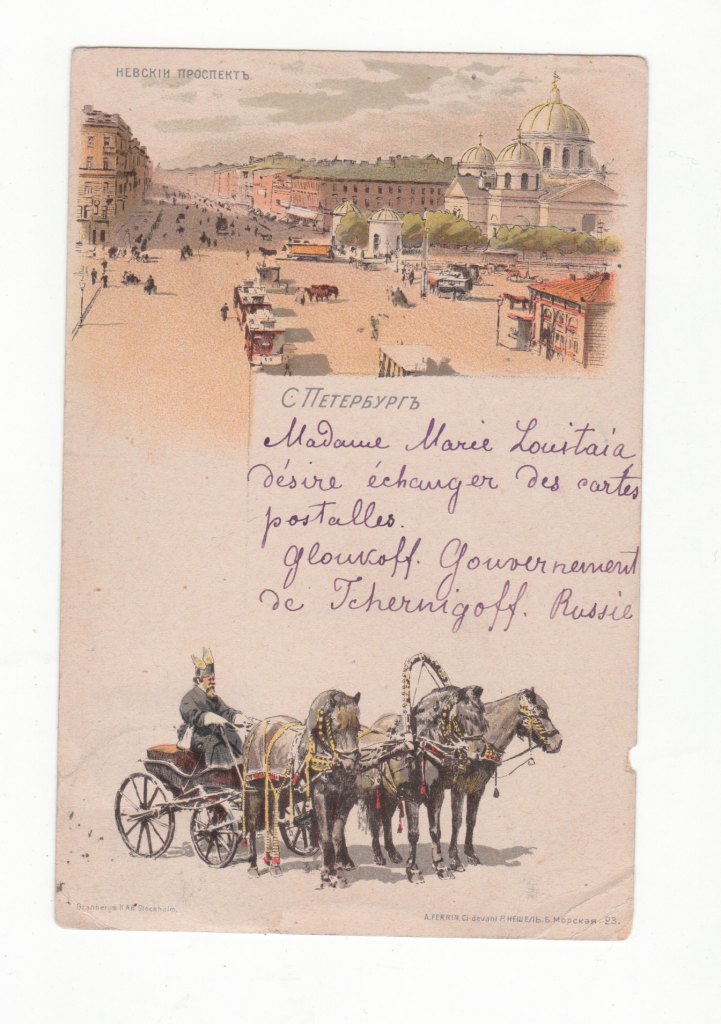 НЕВСКІИ ПРОСПЕКТЪ.
С ПЕТЕРБУРГЪ
Madame Marie Louitaia
désire échanger des cartes
postalles.
Gloukoff. Gouvernement
de Tchernigoff. Russie
Granbergs K.A.B. Stockholm.
A.FERRIN, Ci-devant F.НЕШЕЛЬ. Б.Морская. 23.